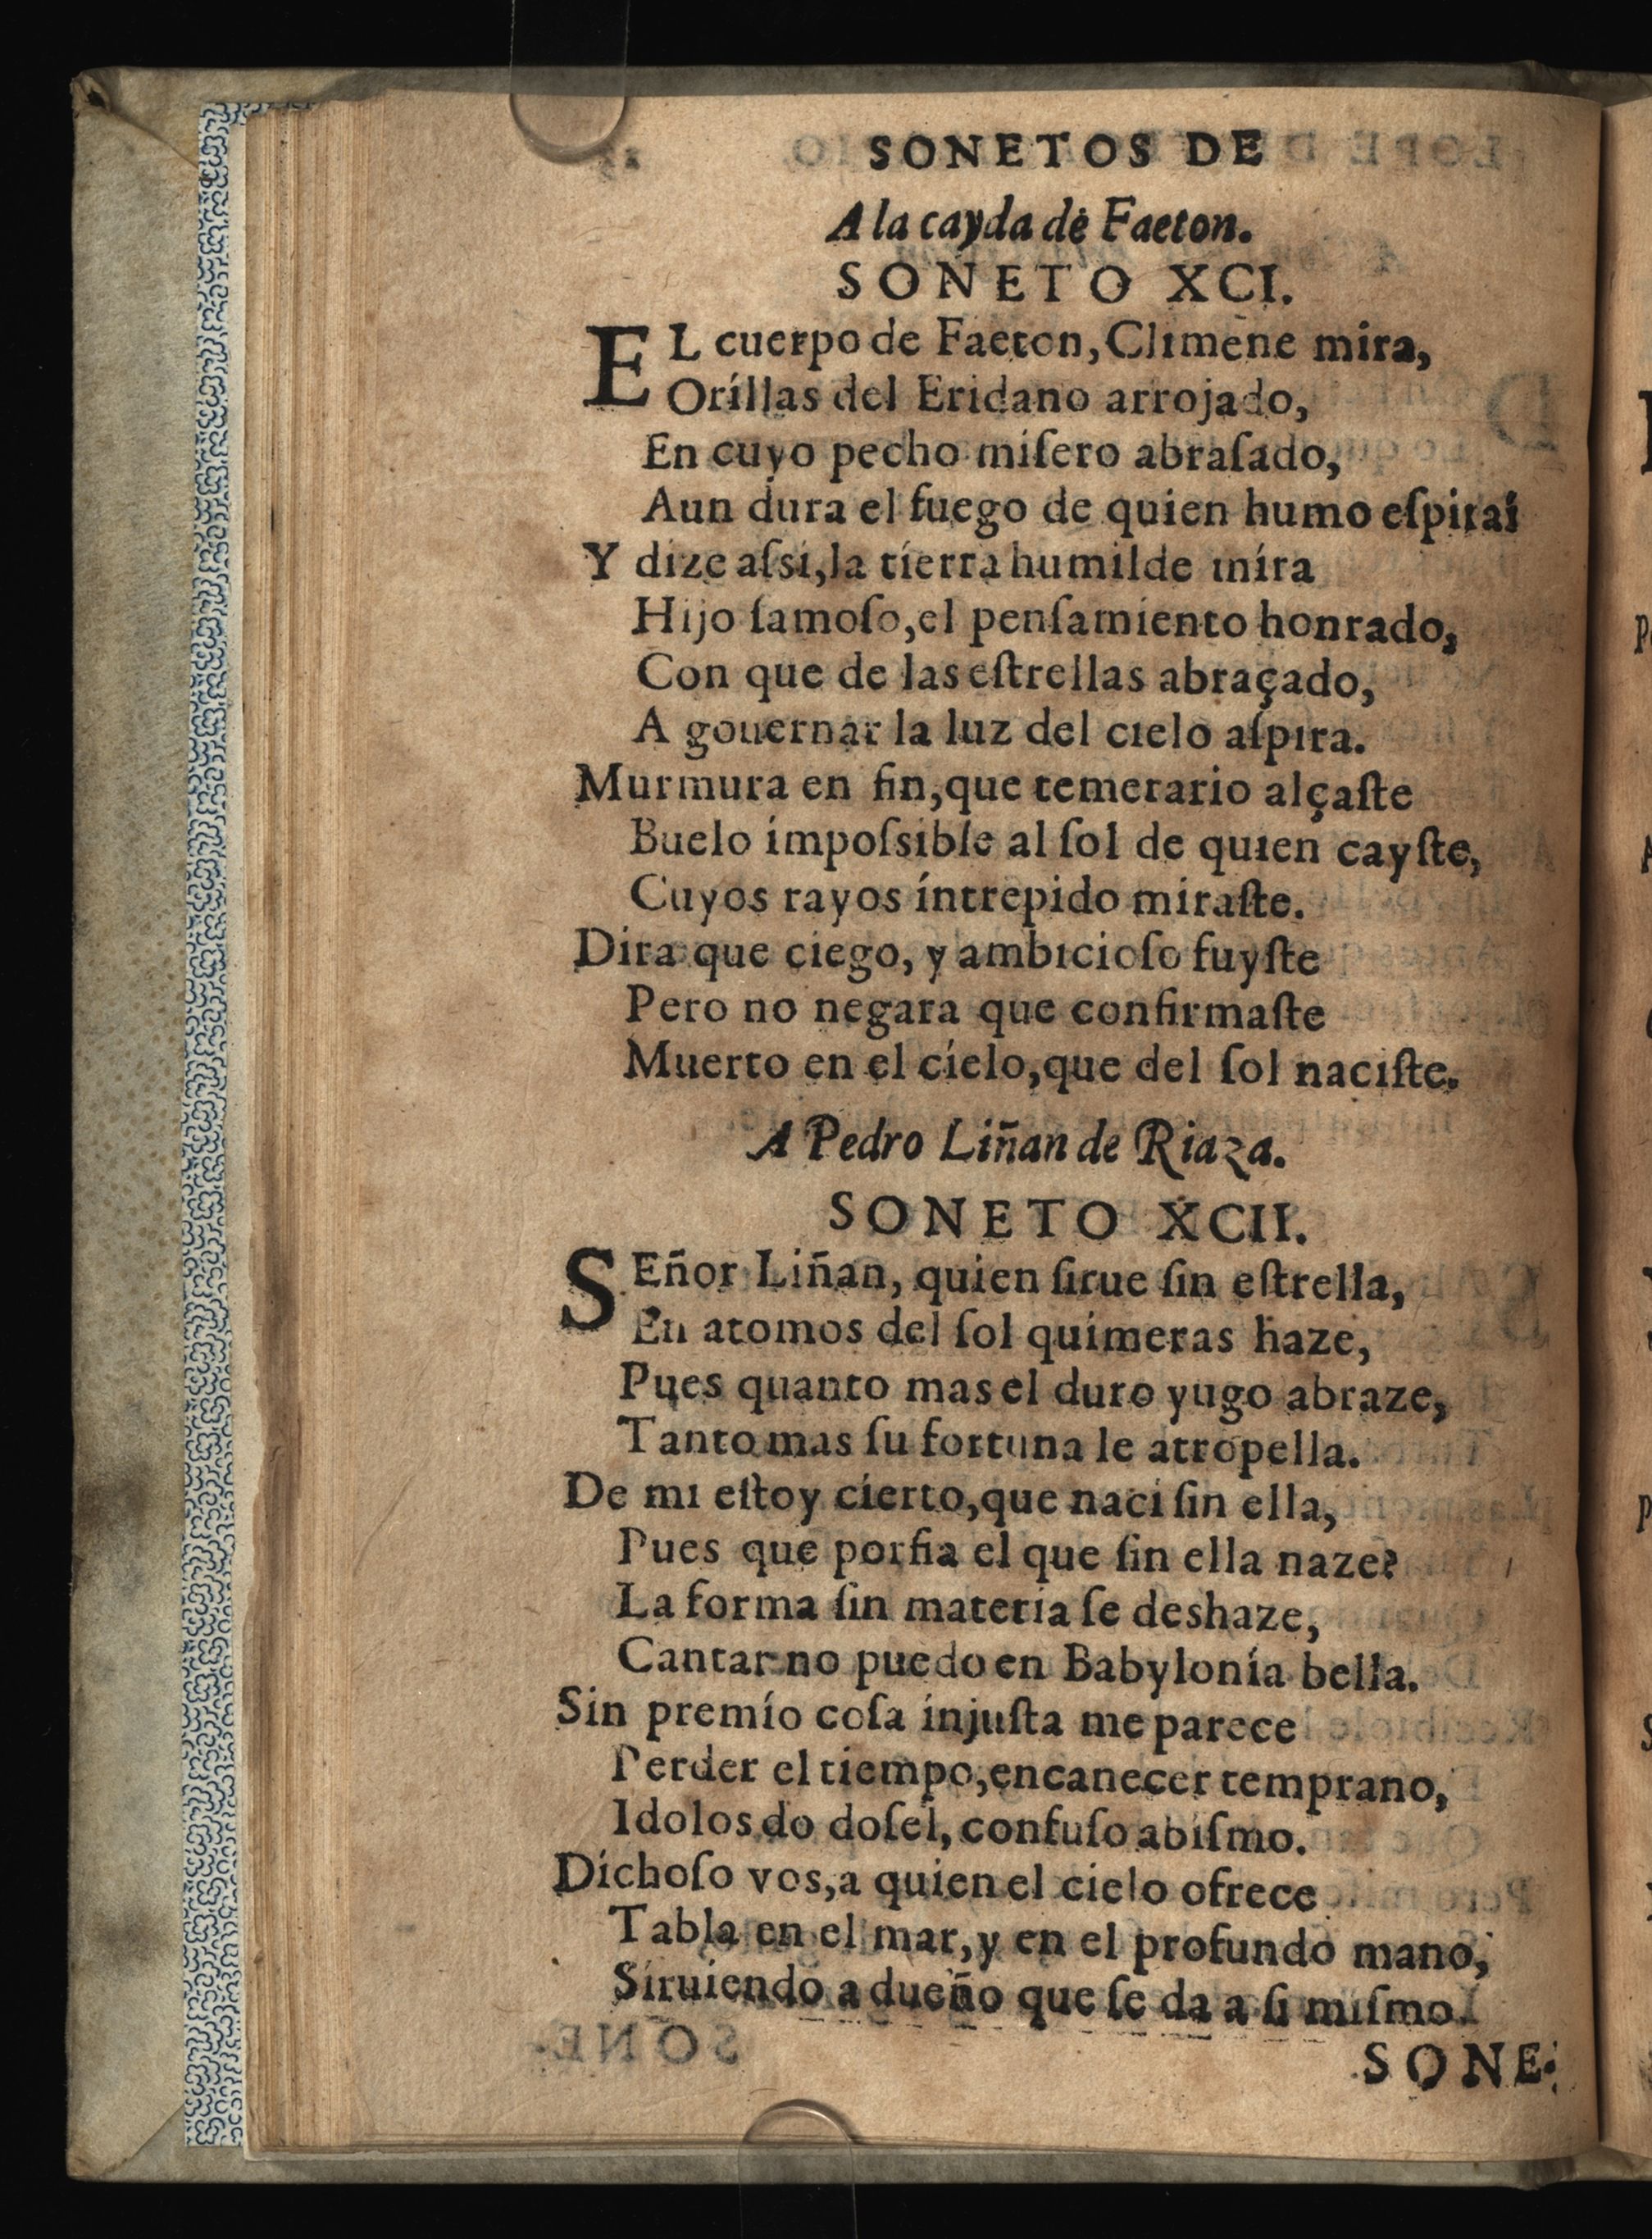 SONETOS DE
A la cayda de Faeton.
SONETO XCI.
EL cuerpo de Faeton, Climene mira,
Orillas del Eridano arrojado,
En cuyo pecho miſero abraſado,
Aun dura el fuego de quien humo eſpira:
Y dize aſsi, la tierra humilde mira
Hijo famoſo, el penſamiento honrado,
Con que de las eſtrellas abraçado,
A gouernar la luz del cielo aſpira.
Murmura en fin, que temerario alçaſte
Buelo impoſsible al ſol de quien cayſte,
Cuyos rayos intrepido miraſte.
Dira que ciego, y ambicioſo fuyſte
Pero no negara que confirmaſte
Muerto en el cielo, que del ſol naciſte.
A Pedro Liñan de Riaza.
SONETO XCII.
SEñor Liñan, quien ſirue ſin eſtrella,
En atomos del ſol quimeras haze,
Pues quanto mas el duro yugo abraze,
Tanto mas ſu fortuna le atropella.
De mi eſtoy cierto, que naci ſin ella,
Pues que porfia el que ſin ella naze?
La forma ſin materia ſe deshaze,
Cantar no puedo en Babylonia bella.
Sin premio coſa injuſta me parece
Perder el tiempo, encanecer temprano,
Idolos do doſel, confuſo abiſmo.
Dichoſo vos, a quien el cielo ofrece
Tabla en el mar, y en el profundo mano,
Siruiendo a dueño que ſe da a ſi miſmo.
SONE-